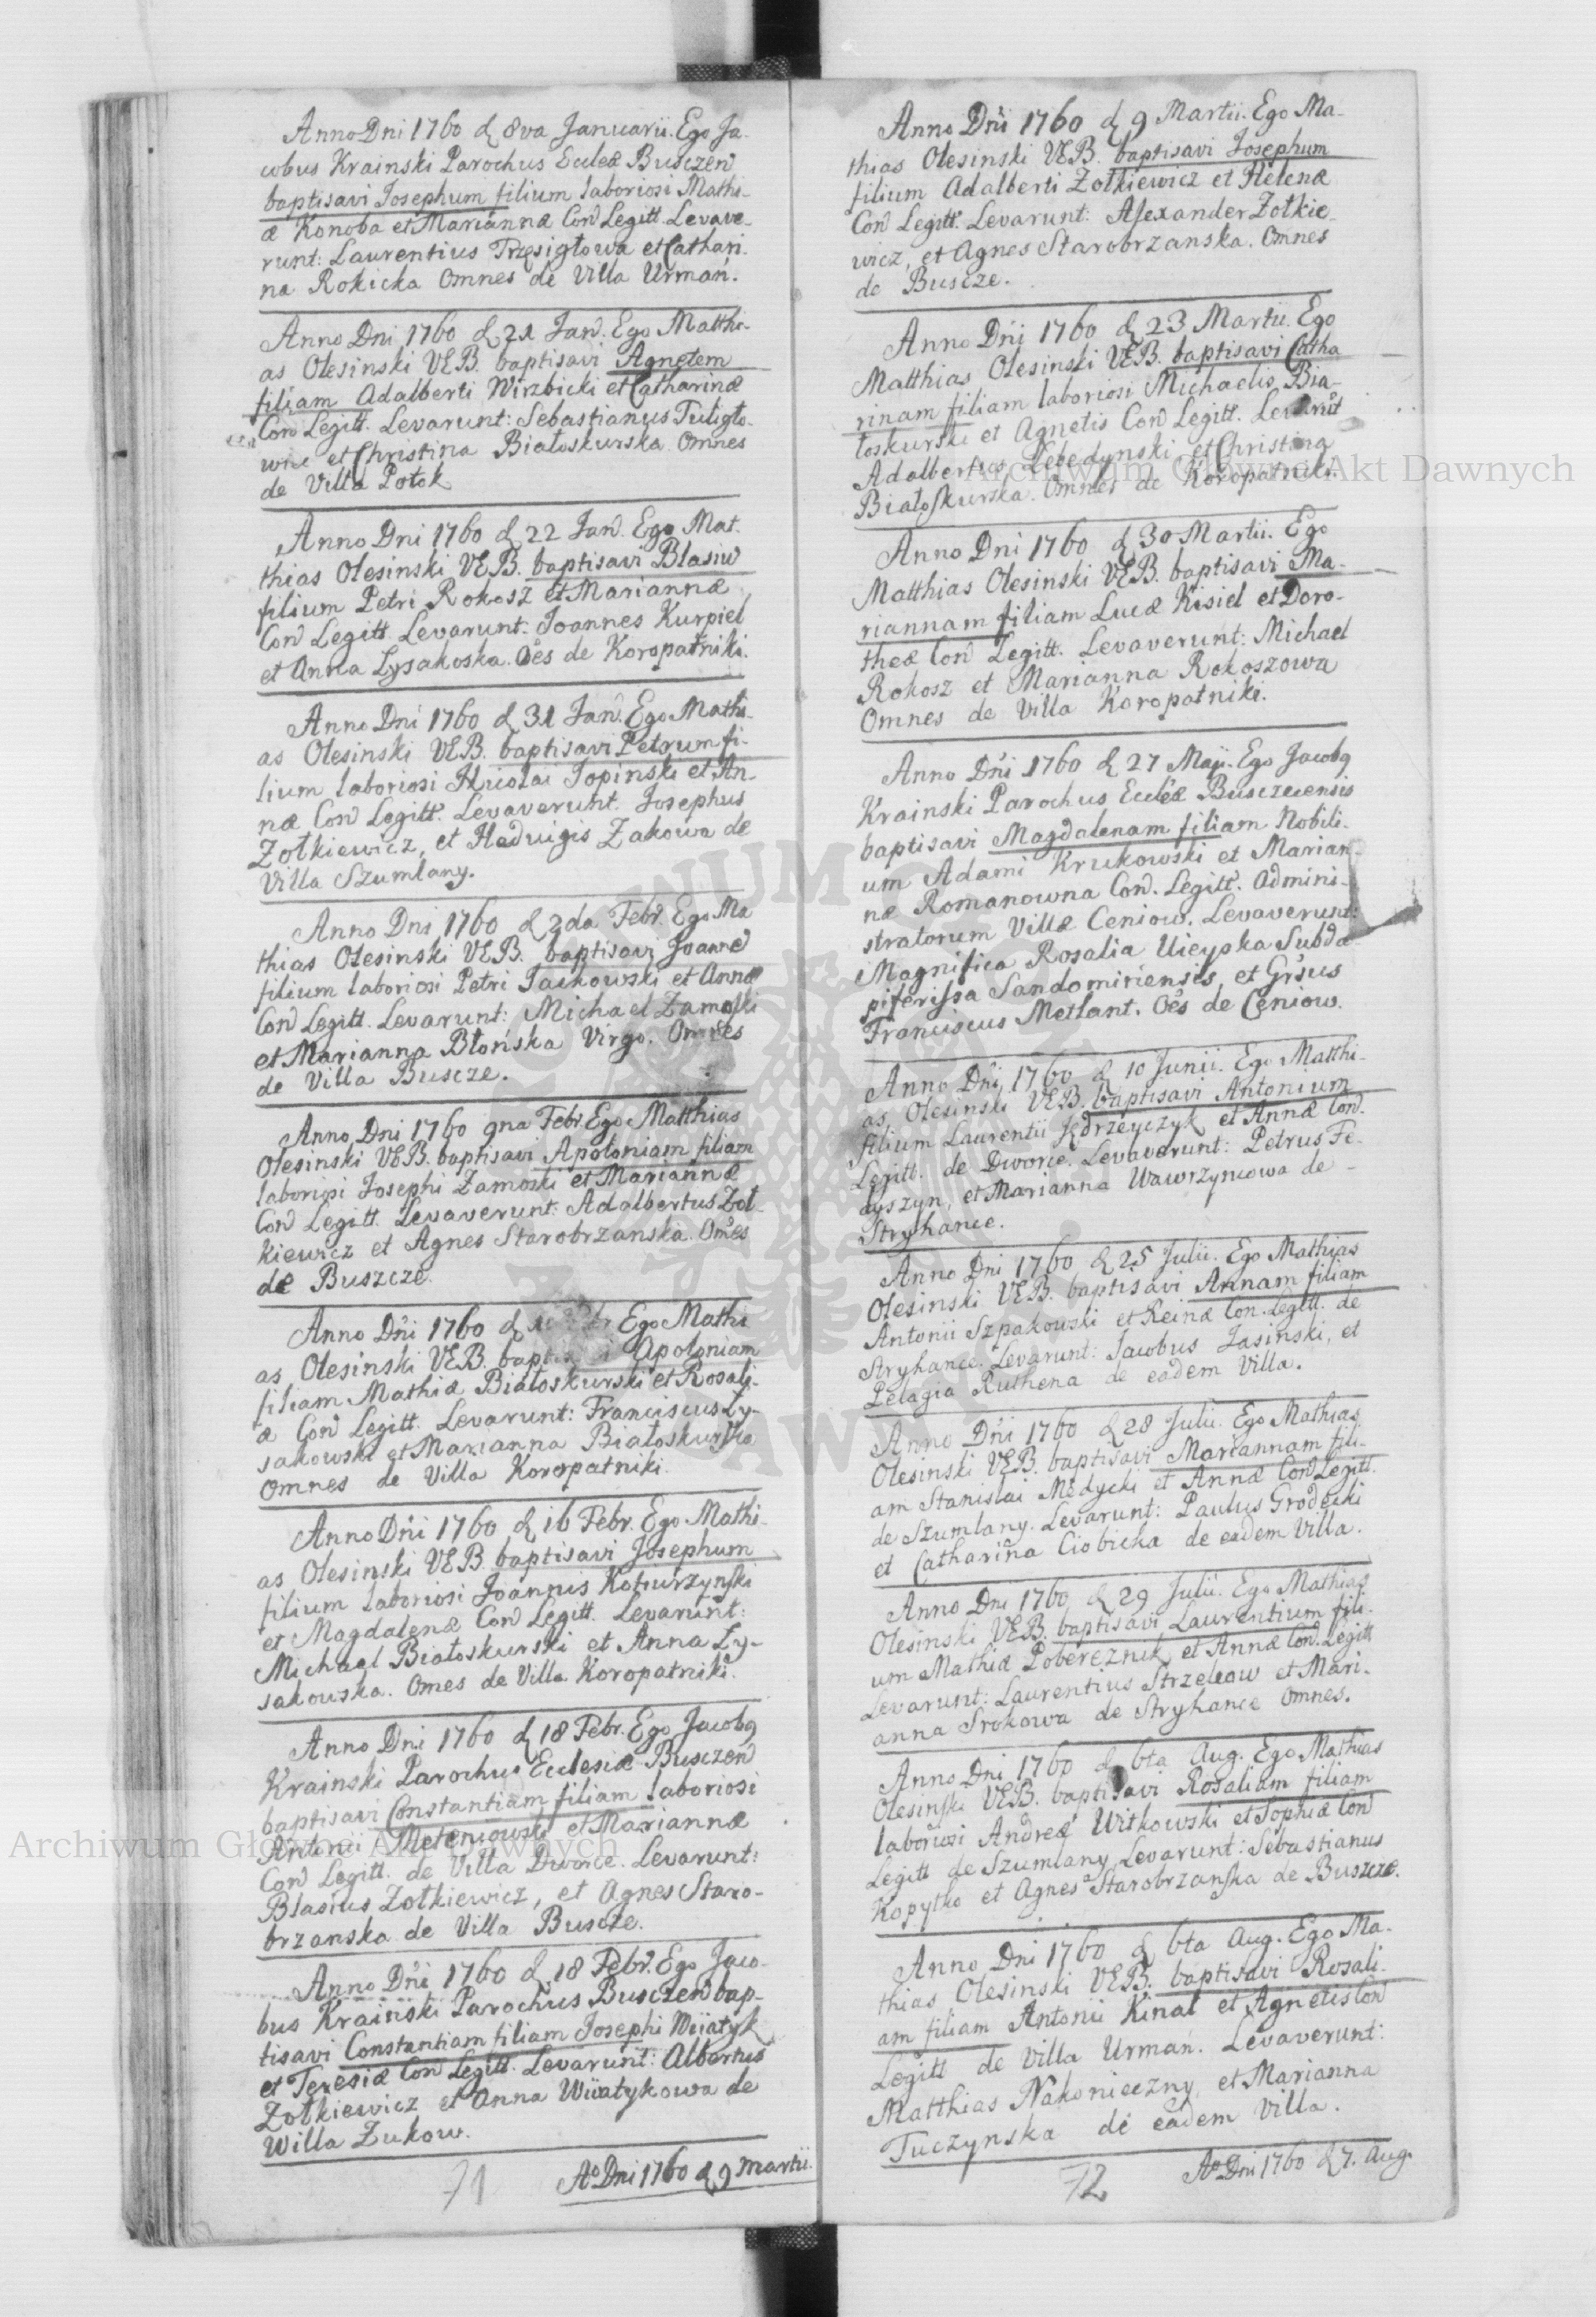 Anno Dni 1760 d 8va Januarii. Ego Ja-
cobus Krainski Parochus Eccleæ Busczen
baptisavi Josephum filium laboriosi Mathi-
æ Konoba et Mariannæ Con Legitt. Levave-
runt: Laurentius et Cathari-
na Rokicka Omnes de Villa Urmań.
Anno Dni 1760 d 21 Jan. Ego Matthi-
as Olesinski VEB. baptisavi Agnetem
filiam Adalberti Wirzbicki et Catharinæ
Con Legitt. Levarunt: Sebastianus Tuligło-
wicz et Christina Białoskurska Omnes
de Villa Potok
Anno Dni 1760 d 22 Jan. Ego Mat-
thias Olesinski VEB. baptisavi Blasiu
filium Petri Rokosz et Mariannæ
Con Legitt. Levarunt: Joannes Kurpiel
et Anna Lysakoska. Oes de Koropatniki.
Anno Dni 1760 d 31 Jan. Ego Mathi-
as Olesinski VEB. baptisavi Petrum fi-
lium laboriosi Nicolai Topinski et An-
næ Con Legitt. Levaverunt. Josephus
Zołkiewicz, et Hedvigis Zakowa de
Villa Szumlany.
Anno Dni 1760 d 2da Febr. Ego Ma
thias Olesinski VEB. baptisavi Joanne
filium laboriosi Petri Jackowski et Annæ
Con Legitt. Levarunt: Michael Zamoski
et Marianna Błońska Virgo. Omnes
de Villa Buscze.
Anno Dni 1760 9na Febr. Ego Matthias
Olesinski VEB. baptisavi Apoloniam filiam
laboriosi Josephi Zamoski et Mariannæ
Con Legitt. Levaverunt: Adalbertus Zoł-
kiewicz et Agnes Starobrzanska. Omes
de Buszcze.
Anno Dni 1760 d Ego Mathi
as Olesinski VEB. Apoloniam
filiam Mathiæ Białoskurski et Rosali-
æ Con Legitt. Levarunt: Franciscus Ly-
sakowski et Marianna Białoskurska
Omnes de Villa Koropatniki.
Anno Dni 1760 d 16 Febr. Ego Mathi-
as Olesinski VEB. baptisavi Josephum
filium laboriosi Joannis Koturzynski
et Magdalenæ Con Legitt. Levarunt:
Michael Białoskurski et Anna Ly-
sakowska. Omes de Villa Koropatniki.
Anno Dni 1760 d 18 Febr. Ego Jacobq
Krainski Parochus Ecclesiæ Busczen
baptisavi Constantiam filiam laboriosi
Antonii et Mariannæ
Con Legitt. de Villa Dworce. Levarunt:
Blasius Zołkiewicz, et Agnes Staro-
brzanska de Villa Buscze.
Anno Dni 1760 d 18 Febr. Ego Jaco-
bus Krainski Parochus Busczen bap-
tisavi Constantiam filiam Josephi Wiiatyk
et Teresiæ Con Legitt. Levarunt: Albertus
Zołkiewicz et Anna Wiiatykowa de
Willa Zukow.
71
Ao Dni 1760 d 9 Martii.
Anno Dni 1760 d 9 Martii. Ego Ma-
thias Olesinski VEB. baptisavi Josephum
filium Adalberti Zołkiewicz et Helenæ
Con Legitt. Levarunt: Alexander Zołkie-
wicz, et Agnes Starobrzanska. Omnes
de Buscze.
Anno Dni 1760 d 23 Martii. Ego
Matthias Olesinski VEB. baptisavi Catha
rinam filiam laboriosi Michaelis Bia-
łoskurski et Agnetis Con Legitt. Levarut
Adalbertus Lebedynski et Christina
Białoskurska. Omnes de Koropatniki.
Anno Dni 1760 d 30 Martii. Ego
Matthias Olesinski VEB. baptisavi Ma-
riannam filiam Lucæ Kisiel et Doro-
theæ Con Legitt. Levaverunt: Michael
Rokosz et Marianna Rokoszowa
Omnes de Villa Koropatniki.
Anno Dni 1760 d 27 Maji. Ego Jacobq
Krainski Parochus Eccleæ Busczecensis
baptisavi Magdalenam filiam Nobili-
um Adami Krukowski et Marian-
næ Romanowna Con. Legitt. Admini-
stratorum Villæ Ceniow. Levaverunt:
Magnifica Rosalia Uieyska Subda
piferissa Sandomiriensis, et Grsus
Franciscus Metlant. Oes de Ceniow.
Anno Dni 1760 d 10 Junii. Ego Matthi-
as Olesinski VEB. baptisavi Antonium
filium Laurentii Jędrzeyczyk et Annæ Con.
Legitt. de Dworce. Levaverunt: Petrus Fe-
dyszyn, et Marianna Wawrzyncowa de
Stryhance.
Anno Dni 1760 d 25 Julii. Ego Mathias
Olesinski VEB. baptisavi Annam filiam
Antonii Szpakowski et Reinæ Con. Legitt. de
Stryhance. Levarunt: Jacobus Jasinski, et
Pelagia Ruthena de eadem Villa.
Anno Dni 1760 d 28 Julii. Ego Mathias
Olesinski VEB. baptisavi Mariannam fili-
am Stanislai Medycki et Annæ Con Legitt.
de Szumlany. Levarunt: Paulus Grodecki
et Catharina Ciobicka de eadem Villa.
Anno Dni 1760 d 29 Julii. Ego Mathias
Olesinski VEB. baptisavi Laurentium fili-
um Mathiæ Pobereznik et Annæ Con. Legitt
Levarunt: Laurentius Strzelcow et Mari-
anna Srokowa de Stryhance Omnes.
Anno Dni 1760 d 6ta Aug. Ego Mathias
Olesinski VEB. baptisavi Rosaliam filiam
laboriosi Andreæ Witkowski et Sophiæ Con
Legitt de Szumlany. Levarunt: Sebastianus
Kopytko et Agnes Starobrzanska de Buszcze.
Anno Dni 1760 d 6ta Aug. Ego Ma-
thias Olesinski VEB. baptisavi Rosali-
am filiam Antonii Kinal et Agnetis Con
Legitt de Villa Urmań. Levaverunt:
Matthias Nakonieczny, et Marianna
Tuczynska de eadem Villa.
72
Ao Dni 1760 d 7. Aug.
Archiwum Główne Akt Dawnych
Archiwum Główne Akt Dawnych